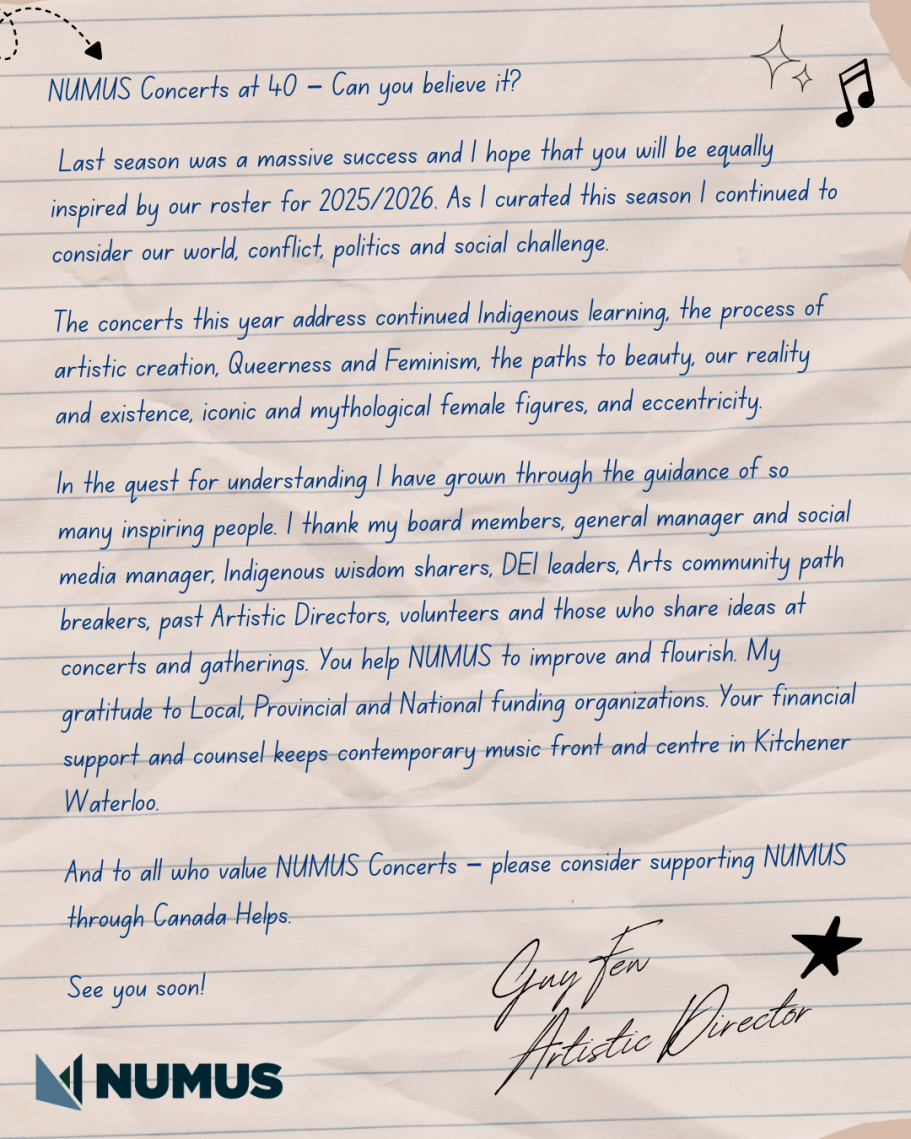 NUMUS Concerts at 40 – Can you believe it?
Last season was a massive success and I hope that you will be equally
inspired by our roster for 2025/2026. As I curated this season I continued to
consider our world, conflict, politics and social challenge.
The concerts this year address continued Indigenous learning, the process of
artistic creation, Queerness and Feminism, the paths to beauty, our reality
and existence, iconic and mythological female figures, and eccentricity.
In the quest for understanding I have grown through the guidance of so
many inspiring people. I thank my board members, general manager and social
media manager, Indigenous wisdom sharers, DEI leaders, Arts community path
breakers, past Artistic Directors, volunteers and those who share ideas at
concerts and gatherings. You help NUMUS to improve and flourish. My
gratitude to Local, Provincial and National funding organizations. Your financial
support and counsel keeps contemporary music front and centre in Kitchener
Waterloo.
And to all who value NUMUS Concerts – please consider supporting NUMUS
through Canada Helps.
See you soon!
Guy Few
Artistic Director
NUMUS